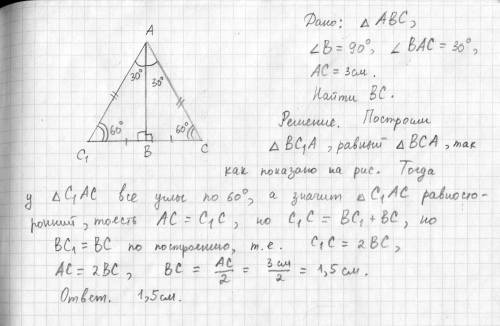 A
30° 30°
60° 60°
C₁ B C
Дано: △ ABC,
∠B = 90°, ∠BAC = 30°,
AC = 3 см.
Найти BC.
Решение. Построим
△ BC₁A, равный △BCA, так
как показано на рис. Тогда
у △C₁AC все углы по 60°, а значит △C₁AC равносто-
ронний, тоесть AC = C₁C, но C₁C = BC₁ + BC, но
BC₁ = BC по построению, т.е. C₁C = 2BC,
AC = 2BC, BC = AC/2 = 3 см/2 = 1,5 см.
Ответ. 1,5 см.